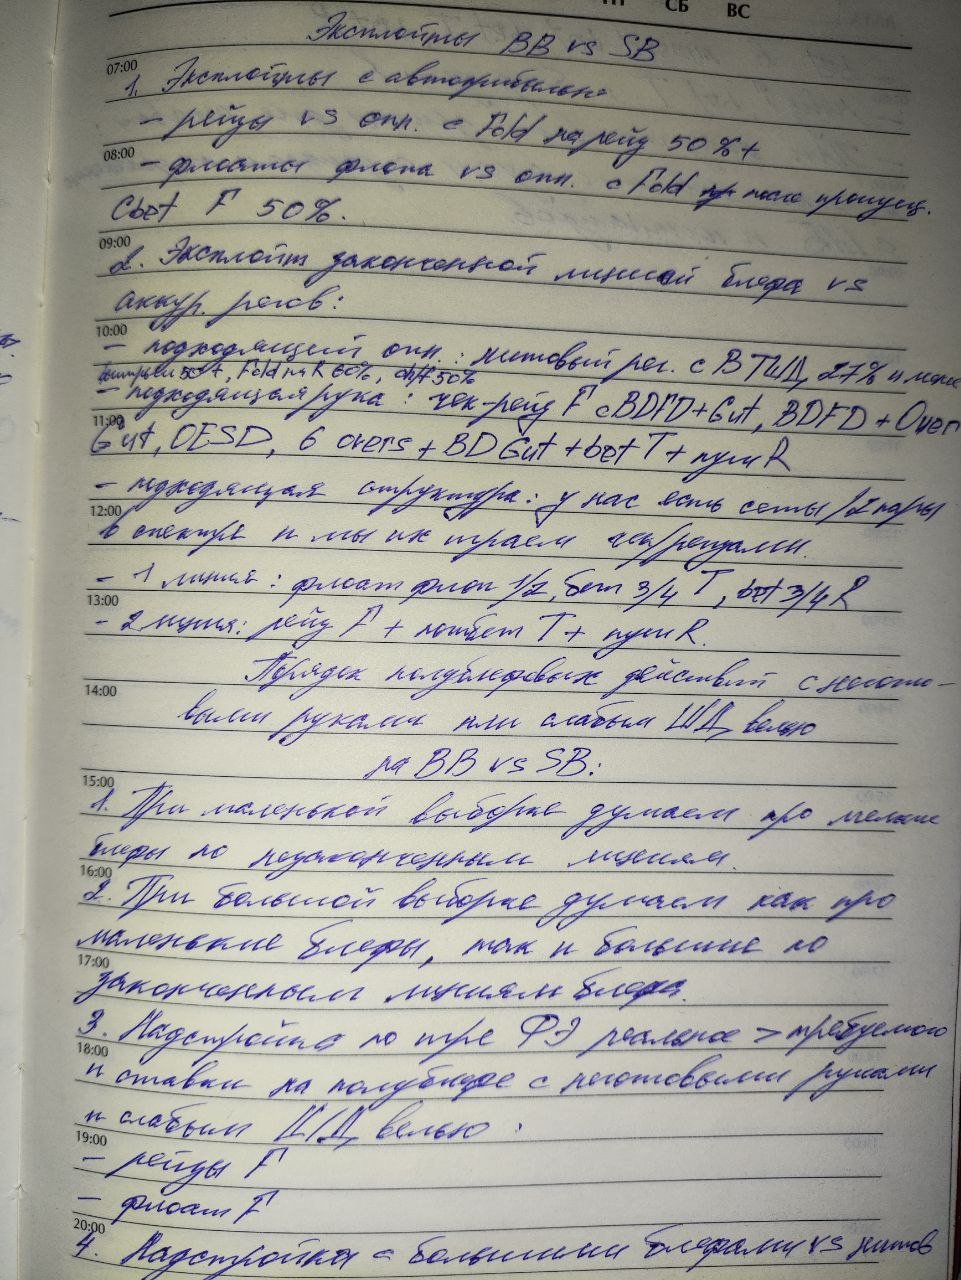 СБ ВС
Эксплойты BB vs SB
07:00
1. Эксплойты с автоприбылью
- рейзы vs опп. с Fold на рейз 50%+
08:00
- флоаты флопа vs опп. с Fold после пропущ.
Cbet F 50%.
09:00
2. Эксплойт законченной линией блефа vs
аккур. регов:
10:00
- подходящий опп.: нитовый рег. с ВТШД 27% и ниже
50+, Fold на R 60%, 50%
- подходящая рука: чек-рейз F с BDFD+Gut, BDFD+Over
11:00
Gut, OESD, 6 overs+BDGut+bet T+пуш R
- подходящая структура: у нас есть сеты/2 пары
12:00
в спектре и мы их играем чек/рейзами.
- 1 линия: флоат флоп 1/2, бет 3/4 T, bet 3/4 R
13:00
- 2 линия: рейз F + потбет T + пуш R.
Порядок полублефовых действий с негото-
14:00
выми руками или слабым ШД велью
на BB vs SB:
15:00
1. При маленькой выборке думаем про мелкие
блефы по незаконченным линиям.
16:00
2. При большой выборке думаем как про
маленькие блефы, так и большие по
17:00
законченным линиям блефа.
3. Надстройка по игре ФЭ реальное > требуемого
18:00
и ставки на полублефе с неготовыми руками
и слабым Ш/Д велью:
19:00
- рейзы F
- флоат F
20:00
4. Надстройка с большими блефами vs нитов